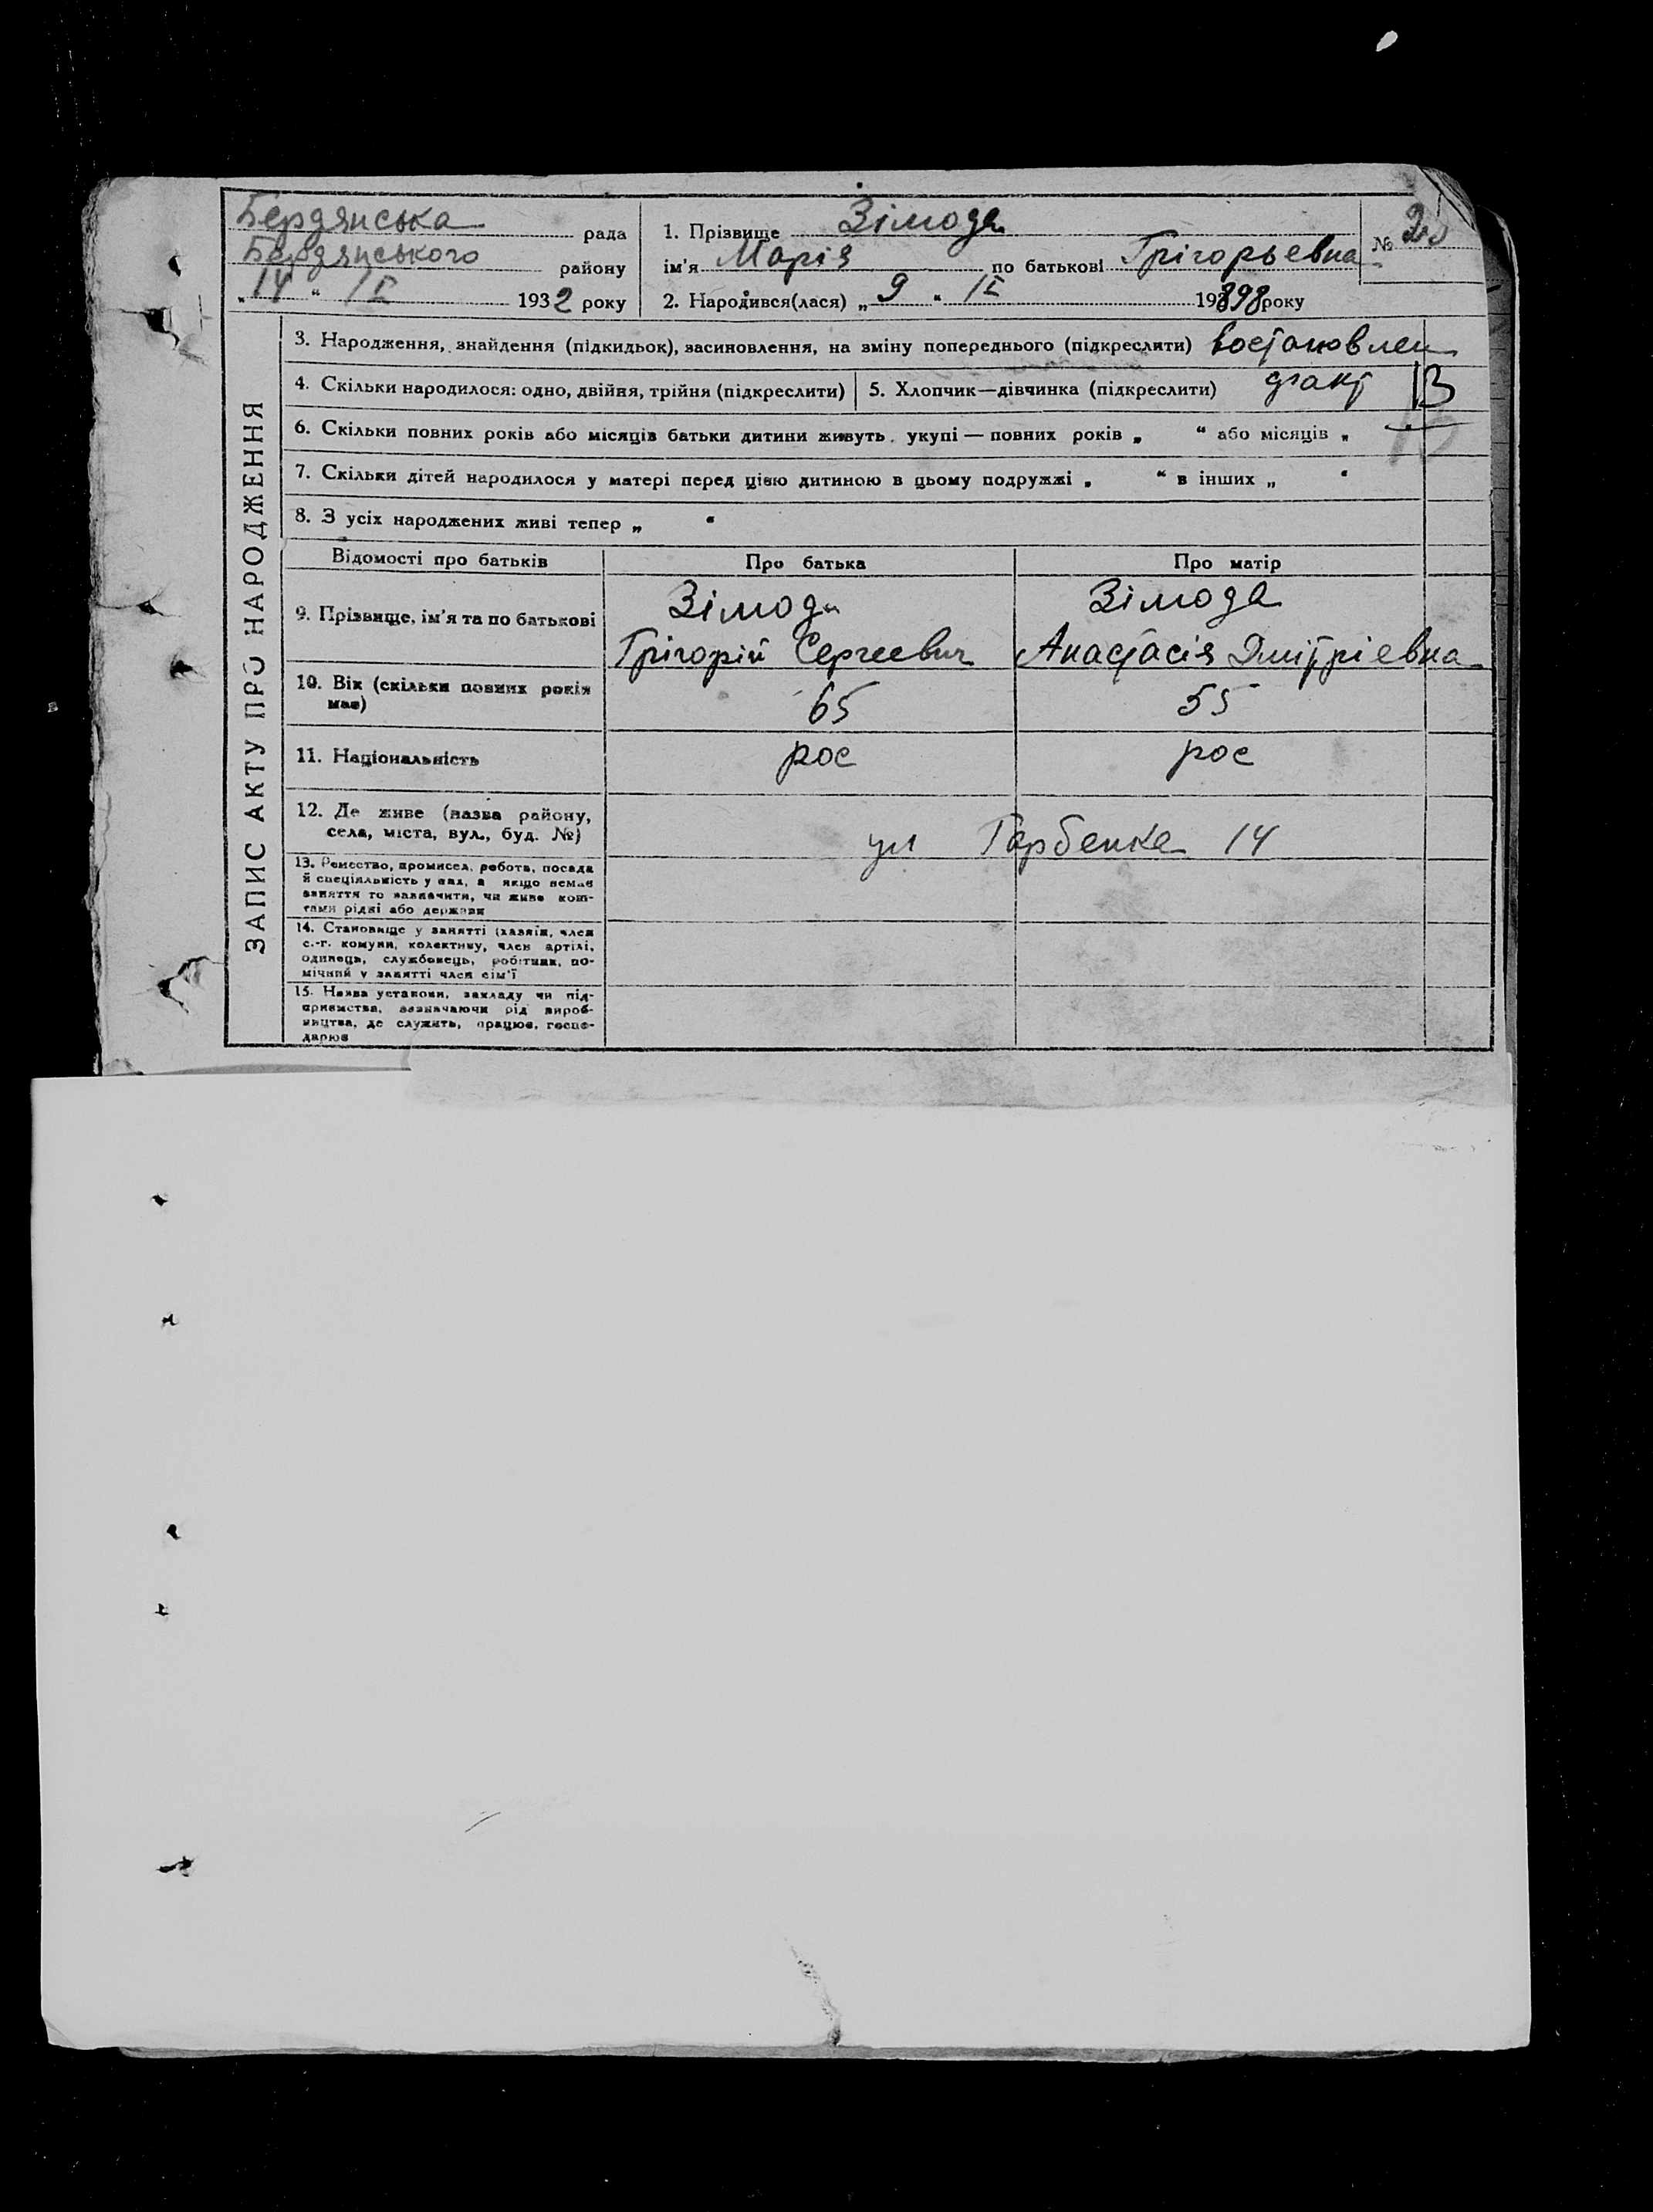 Бердянська рада
Бердянського району
„14“ IX 1932 року
1. Прізвище Зімода
ім'я Марія по батькові Грігорьевна
№
2. Народився(лася) „9“ IX 1898 року
ЗАПИС АКТУ ПРО НАРОДЖЕННЯ
3. Народження, знайдення (підкидьок), засиновлення, на зміну попереднього (підкреслити) востановлен
4. Скільки народилося: одно, двійня, трійня (підкреслити) 5. Хлопчик—дівчинка (підкреслити) факт
6. Скільки повних років або місяців батьки дитини живуть укупі — повних років „ “ або місяців „
7. Скільки дітей народилося у матері перед цією дитиною в цьому подружжі „ “ в інших „ “
8. З усіх народжених живі тепер „ “
Відомості про батьків Про батька Про матір
9. Прізвище, ім'я та по батькові
Зімода
Грігорій Сергеевич
Зімода
Анастасія Дмітріевна
10. Вік (скільки повних років
має)
65 55
11. Національність рос рос
12. Де живе (назва району,
села, міста, вул., буд. №)
ул Горбенка 14
13. Ремество, промисел, робота, посада
й спеціяльність у ній, а якщо немає
заняття то зазначити, чи живе кош-
тами рідні або держави
14. Становище у занятті (хазяїн, член
с.-г. комуни, колективу, член артілі,
одинець, службовець, робітник, по-
мічний у занятті член сім'ї
15. Назва установи, закладу чи під-
приємства, зазначаючи рід вироб-
ництва, де служить, працює, госпо-
дарює